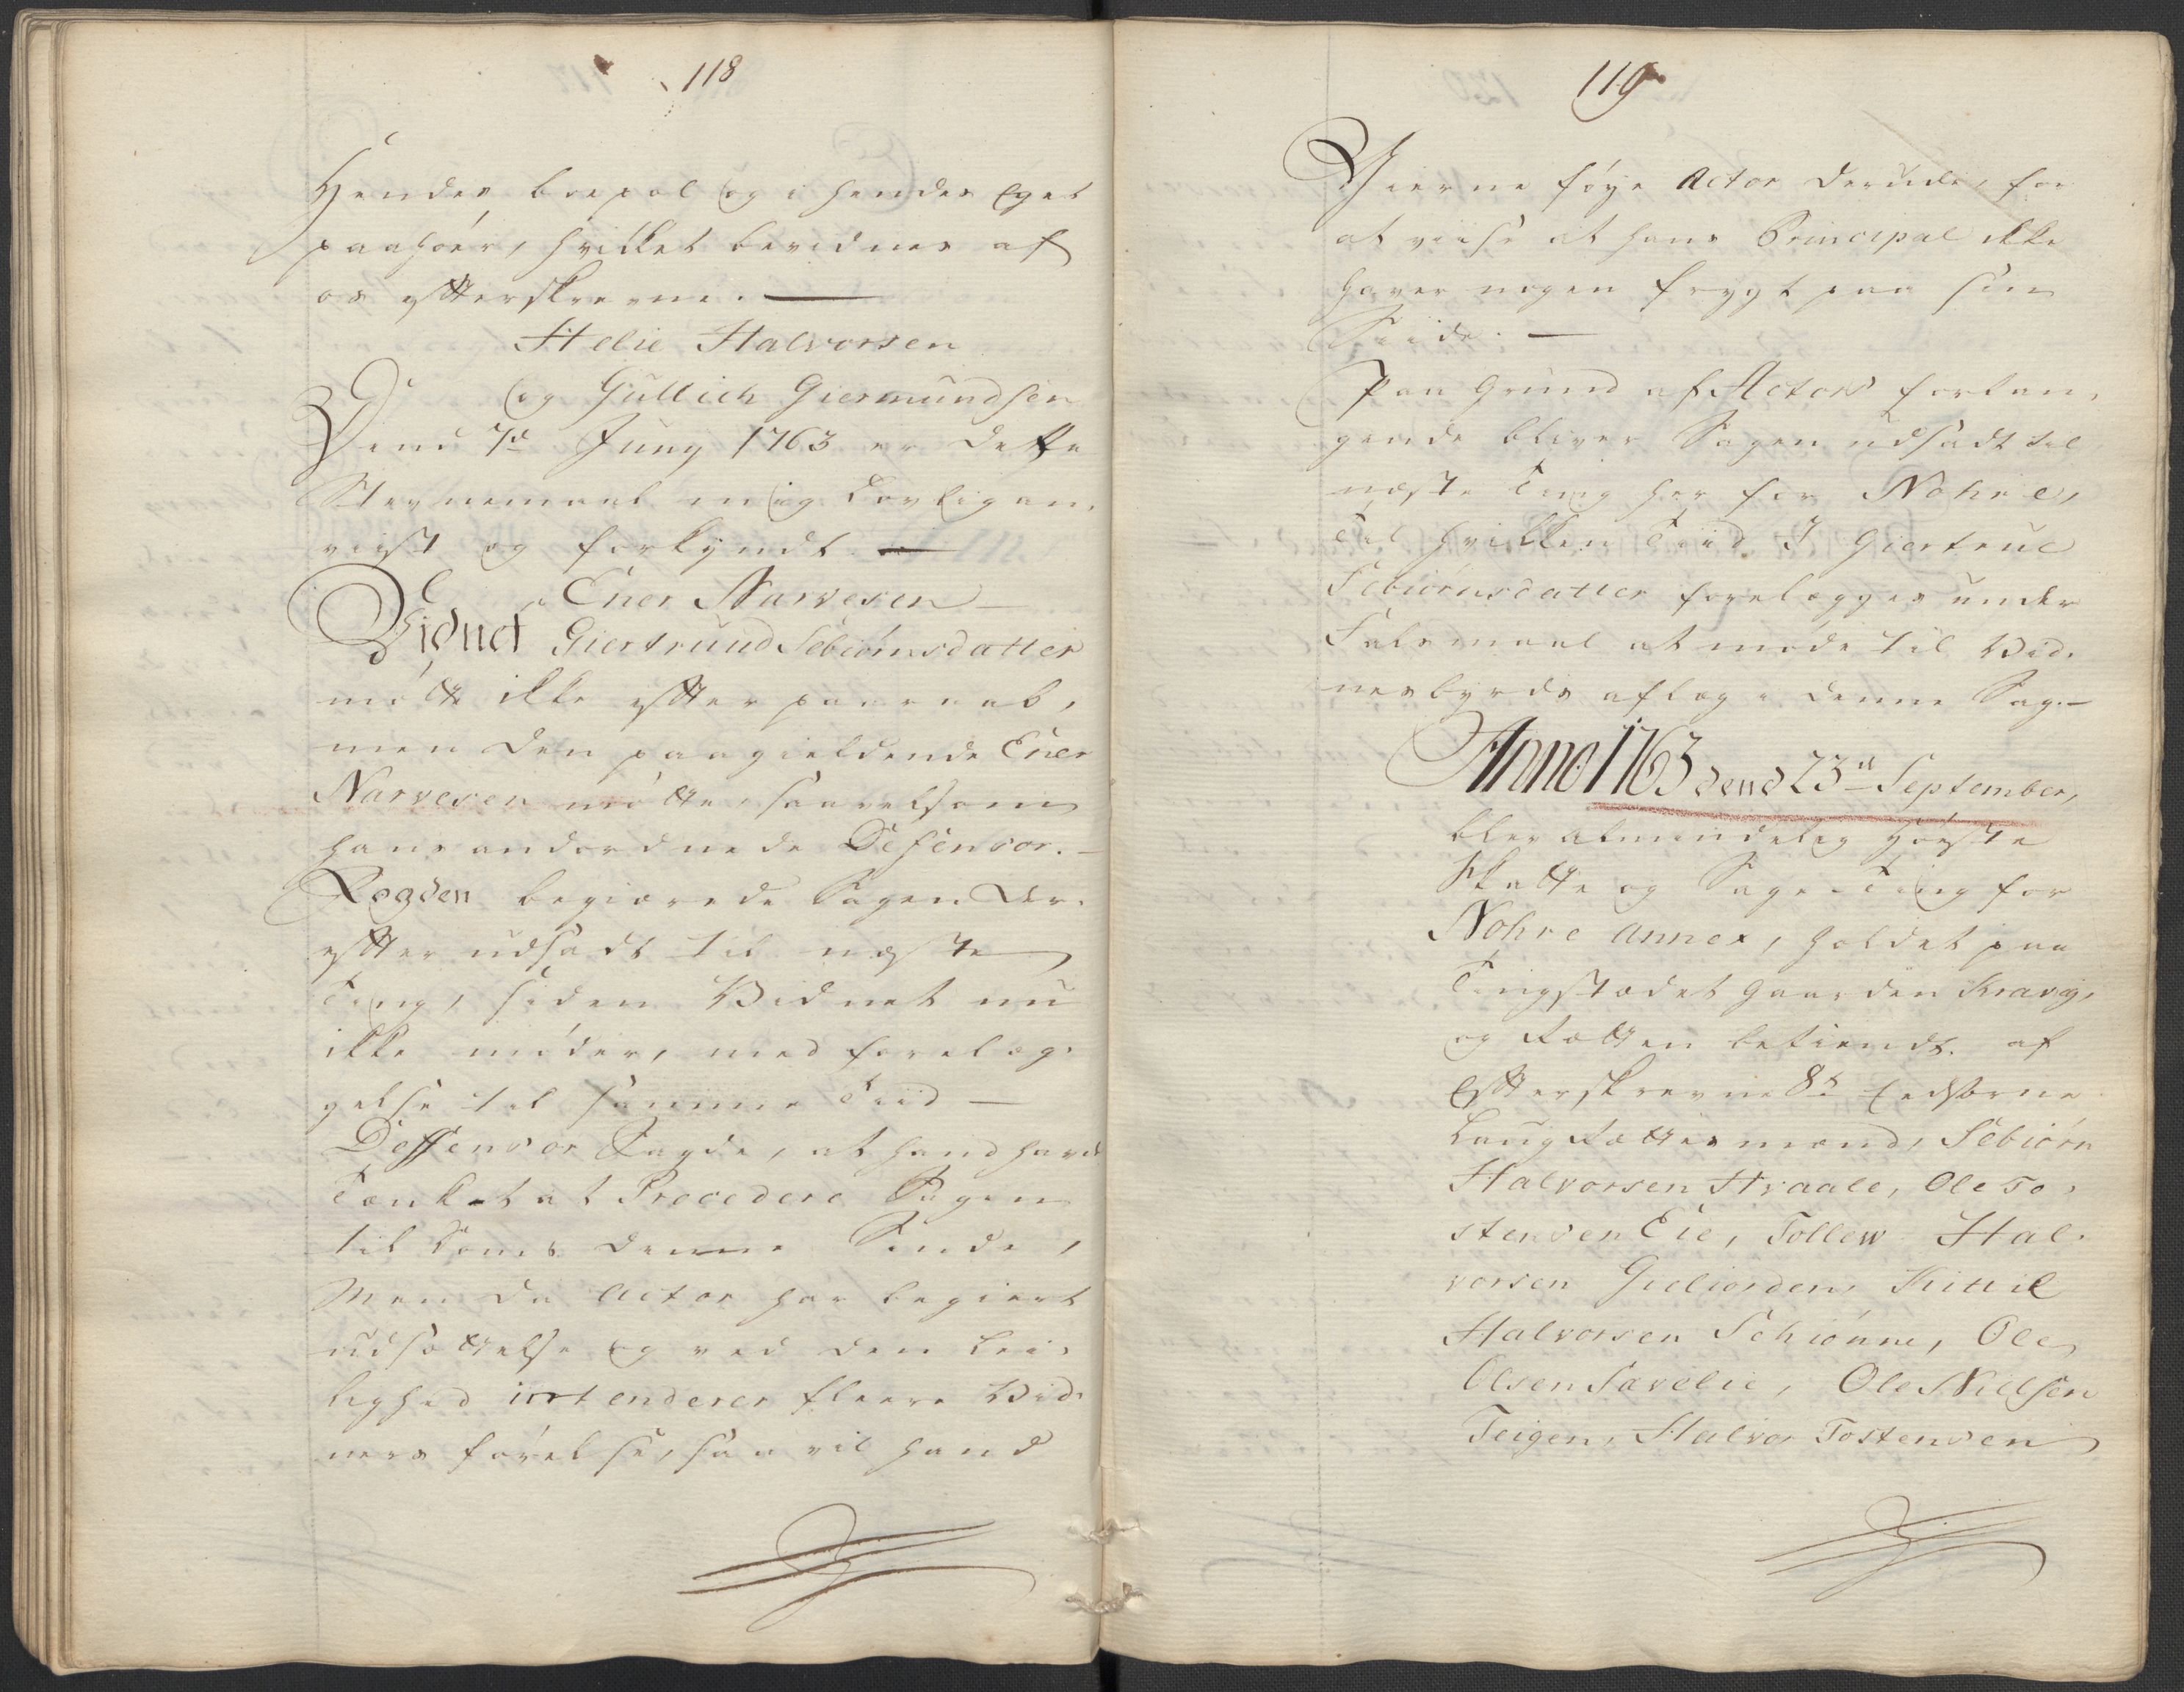 118
Hendes boepæl og i hendes Eget
paahøer, hvilket bevidnes af
os efterskrevne. —
Helie Halvorsen
og Gullich Giermundsen
Dend 7d Juny 1763 er dette
Stevnemaal mig Lovlig an,
viist og forkyndt. —
Ener Narvesen —
Vidnet Giertruud Sebiørnsdatter
mødte ikke efter paaraab,
men den paagieldende Ener
Narvesen mødte, saavelsom
hans andordnede Defensor. —
Fogden begiærede Sagen der,
efter udsadt til næste
Ting, siden Vidnet nu
ikke møder, med forelæg,
gelse til samme Tiid —
Deffensor Sagde, at hand havde
Tænkt at Procedere Sagen
til Doms denne Sinde,
Men da Actor har begiert
udsættelse og ved den Lei,
lighed intenderer fleere Vid,
ners førelse, saa vil hand
119
Gierne føye Actor derudi, for
at viise at hans Principal ikke
haver nogen frygt paa sin
Siide. —
Paa Grund af Actors forlan,
gende bliver Sagen udsadt til
næste Ting her for Nohre,
Til hvilken Tiid I Giertrue
Sebiørnsdatter forelægges under
Falsmaal at møde til Vid,
nesbyrds aflæg i denne Sag. —
Anno 1763 dend 23d September,
blev almindelig Høste
Skatte og Sage-Ting for
Nohre Annex, holdet paa
Tingstædet Gaarden Kravig,
og Rætten betiendt af
Efterskrevne 8te Eedsorne
Laug Rættesmænd, Sebiørn
Halvorsen Hvaale, Ole To,
stensen Eie, Tollew Hal,
vorsen Gielierden, Kittil
Halvorsen Schiønne, Ole
Olsen Sævelie, Ole Nielsen
Teigen, Halvor Tostensen